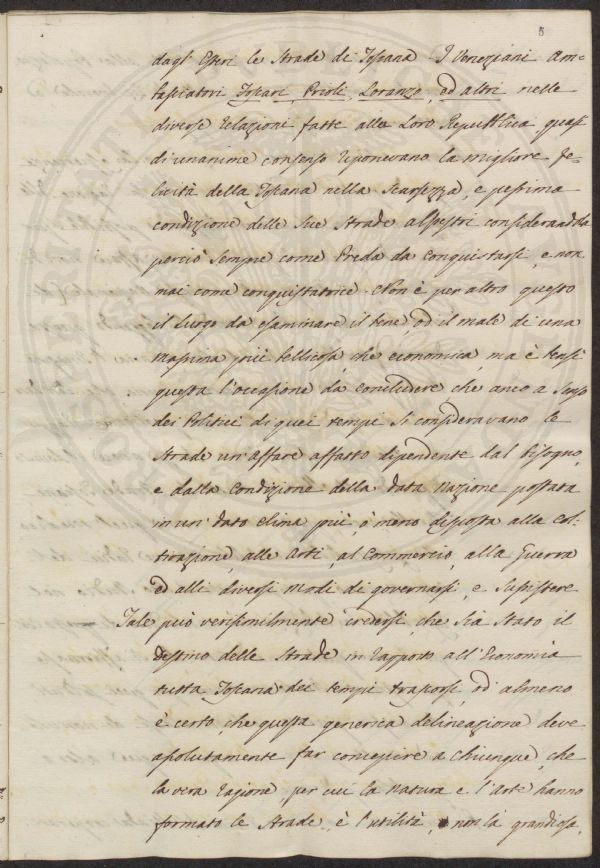 5
dagl' Esteri le Strade di Toscana. I Veneziani Am-
basciatori Foscari, Prioli, Loranzo, ed altri nelle
diverse Relazioni fatte alla Loro Repubblica quasi
di unanime consenso riponevano la migliore fe-
licità della Toscana nella scarsezza, e pessima
condizione delle sue Strade alpestri considerandola
perciò sempre come Preda da conquistarsi, e non
mai come conquistatrice. Non è per altro questo
il Luogo da esaminare il bene, od il male di una
massima più bellicosa, che economica, ma è bensì
questa l'occasione da concludere, che anco a senso
dei Politici di quei tempi si consideravano le
Strade un'affare affatto dipendente dal bisogno,
e dalla Condizione della data Nazione postata
in un' dato clima più, ò meno disposta alla Col-
tivazione, alle Arti, al Commercio, alla Guerra
ed alli diversi modi di governarsi, e sussistere
Tale può verisimilmente credersi, che sia stato il
destino delle Strade in rapporto all' Economia
tutta Toscana dei tempi trascorsi, od almeno
è certo, che questa generica delineazione deve
assolutamente far concepire a chiunque, che
la vera ragione per cui la Natura e l'Arte hanno
formato le Strade è l'utilità, non la grandiosa,